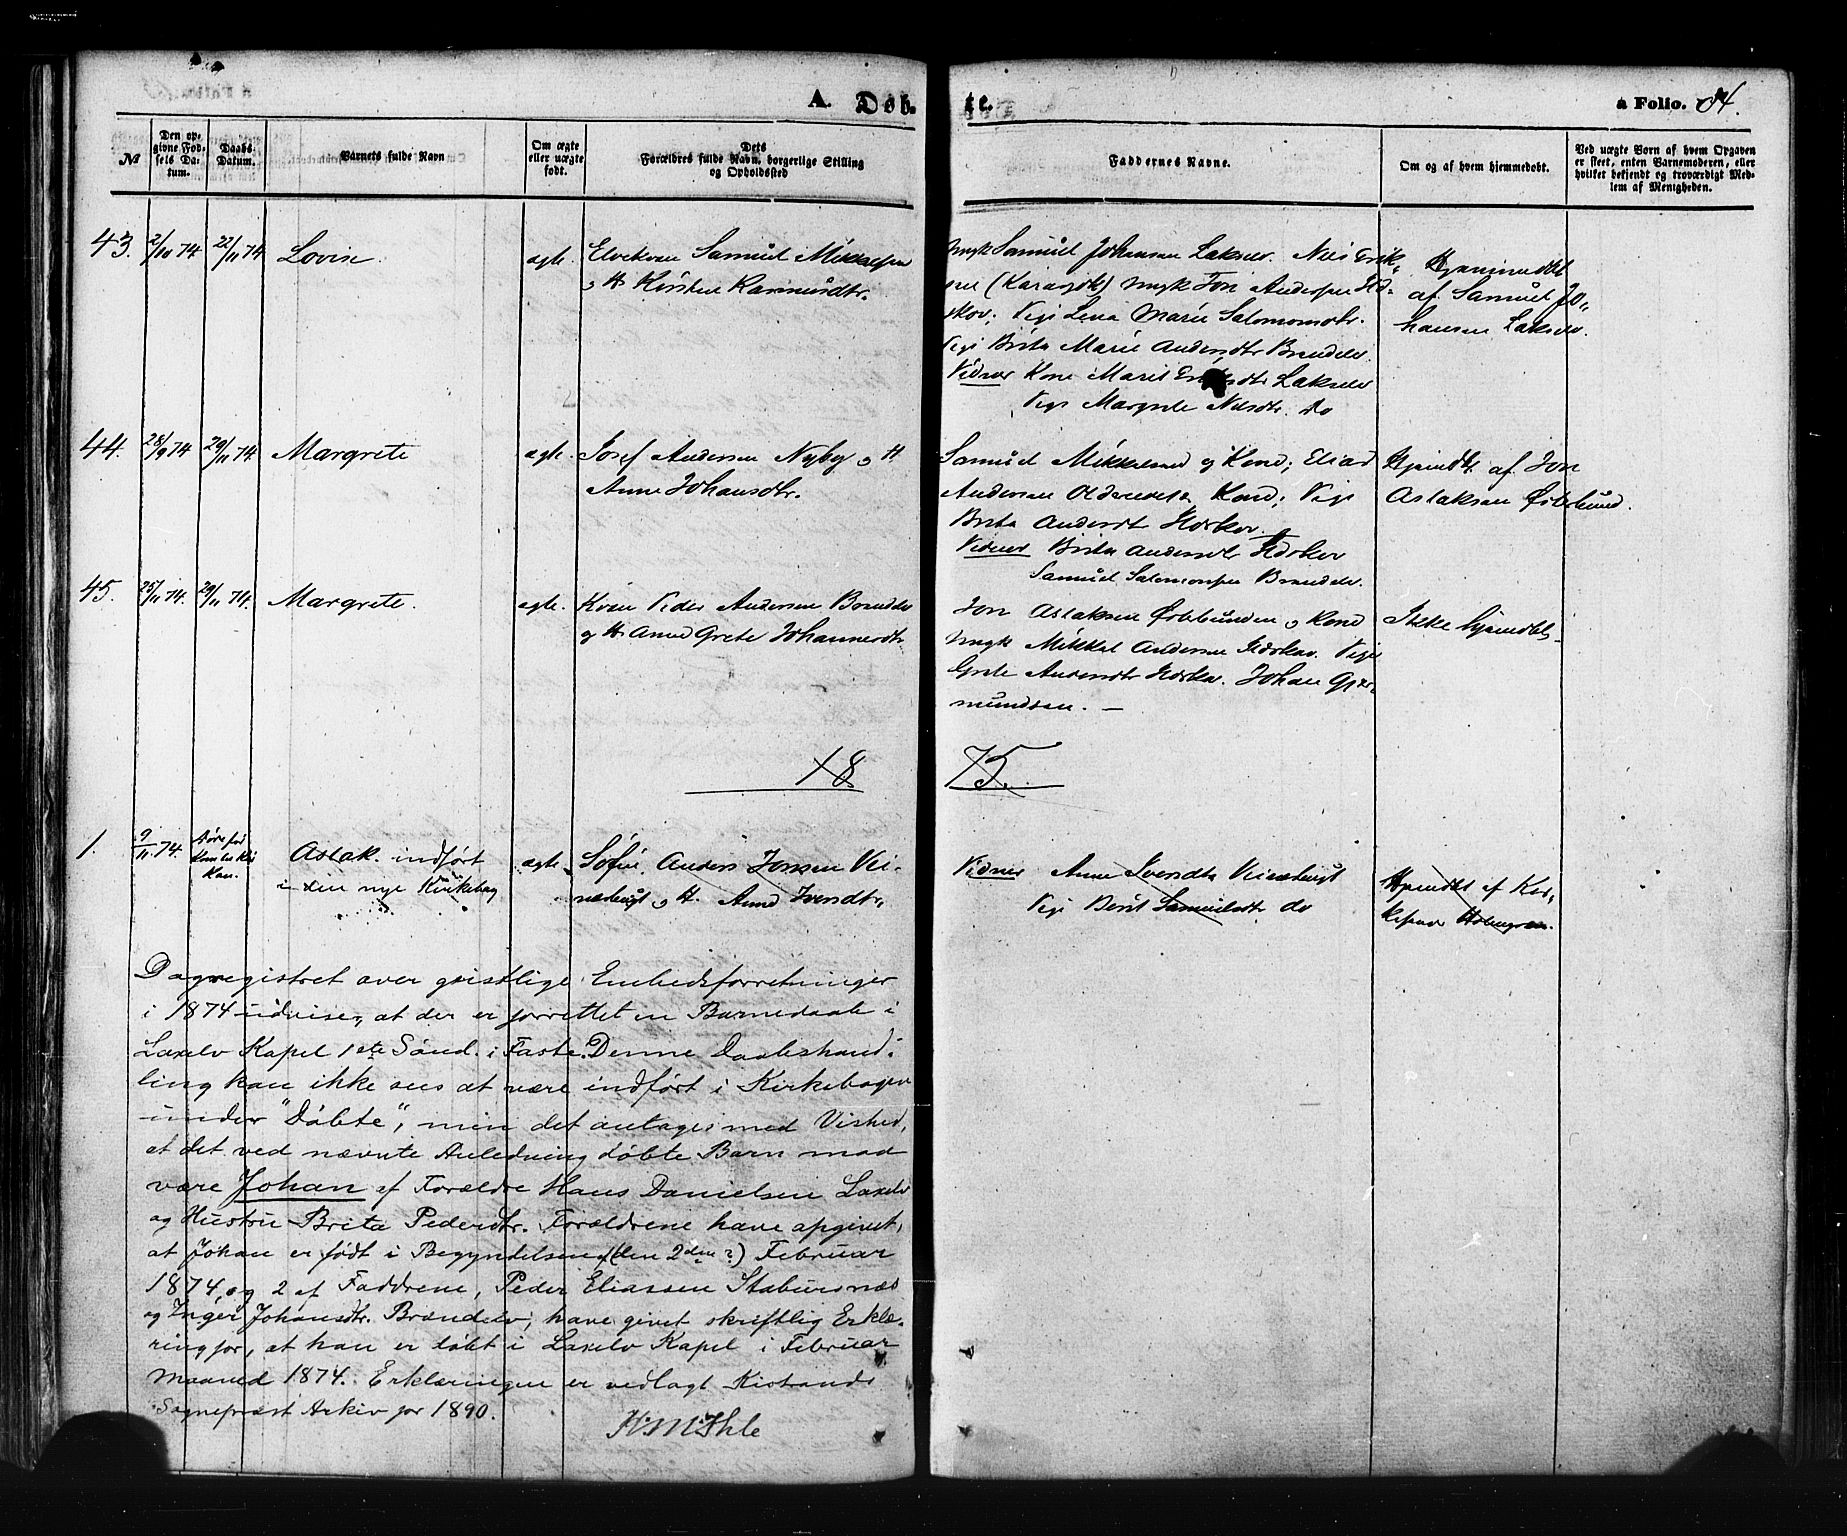 A. Døb-
te.
a Folio. 64.
№
Den op-
givne Fød-
sels Da-
tum.
Daabs
Datum.
Barnets fulde Navn
Om ægte
eller uægte
født.
Dets
Forældres fulde Navn, borgerlige Stilling
og Opholdssted
Faddernes Navne.
Om og af hvem hjemmedøbt.
Ved uægte Børn af hvem Opgaven
er skeet, enten Barnemoderen, eller
hvilket bekjendt og troværdigt Med-
lem af Menigheden.
43. 2/10 74 22/11 74 Lovise. ægte. Elvekven Samuel Mikkelsen
og H Kirsten Rasmusdtr.
Ungk Samuel Johansen Lakselv. Nils Erik-
sen (Karasjok) Ungk Jon Andersen
skov; Pige Lena Marie Salomonsdtr.
Pige Brita Marie Andersdtr Brændelv.
Vidner Kone Marit Lakselv
Pige Margrete Nilsdtr. do
Hjemmedøbt
af Samuel Jo-
hansen Lakselv.
44. 28/9 74 29/11 74. Margrete ægte. Josef Andersen Nyby og H
Anne Johansdtr.
Samuel Mikkelsen og Kone; Elias
Andersen Kone; Pige
Brita Andersdt
Vidner Brita Andersdt
Samuel Salomonsen Brændelv.
Hjemdbt af Jon
Aslaksen Østerbund.
45. 25/11 74. 29/11 74. Margrete. ægte. Kven Peder Andersen Brændelv
og H Anne Grete Johannesdtr.
Jon Aslaksen Østerbunden og Kone
Ungk Mikkel Andersen Pige
Grete Andersdtr Johan Gjer-
mundsen. —
Ikke hjemdbt.
18
75.
1. 9/11 74. Aslak. indført
i den nye Kirkebog
ægte. Søfin. Anders Jonsen Vei-
næsbugt og H. Anne Ivendtr.
Vidner Anne Svendtr Veinæsbugt
Pige Berit Samuelsdtr do
Hjemdbt af Kir-
kesanger Holmgren.
Dagregistret over geistlige Embedsforretninger
i 1874 udviser, at der er forrettet en Barnedaab i
Laxelv Kapel 1ste Sønd. i Faste. Denne Daabshand-
ling kan ikke sees at være indført i Kirkebogen
under "Døbte", men det antages med Vished,
at det ved nævnte Anledning døbte Barn maa
være Johan af Forældre Hans Danielsen Laxelv
og Hustru Brita Pedersdtr. Forældrene have opgivet,
at Johan er født i Begyndelsen (den 2den?) Februar
1874, og 2 af Faddrene, Peder Eliassen Stabursnæs
og Inger Johansdtr. Brændelv, have givet skriftlig Erklæ-
ring for, at han er døbt i Laxelv Kapel i Februar
Maaned 1874. Erklæringen er vedlagt Kistrands
Sognepræst Arkiv for 1890.
H. M. Ihle